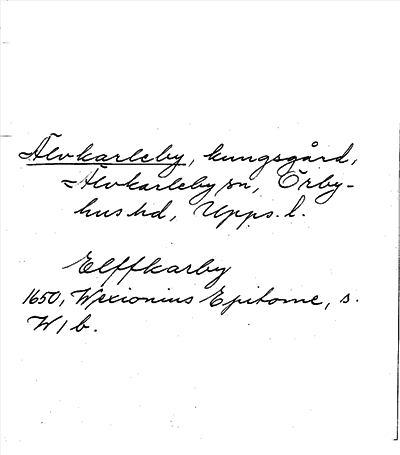 Älvkarleby, kungsgård,
Älvkarleby sn, Örby-
hus hd, Upps. l.
Elffkarby
1650, Wexionius Epitome, s.
W1b.